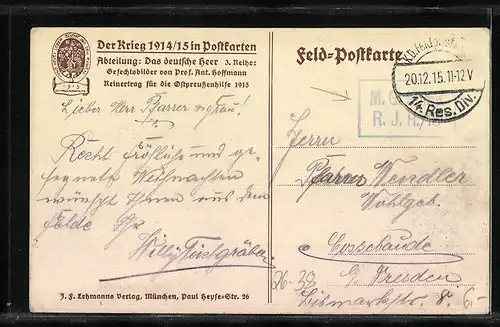 Der Krieg 1914/15 in Postkarten
Abteilung: Das deutsche Heer 3. Reihe:
Gefechtsbilder von Prof. Ant. Hoffmann
Reinertrag für die Ostpreußenhilfe 1915
1915
Lieber Herr Pfarrer
Recht fröhliche und ge-
segnete Weihnachten
wünscht Ihnen aus dem
Felde Ihr
Willy Teichgräber
J. F. Lehmanns Verlag, München, Paul Heyse-Str. 26
Feld-Postkarte
20.12.15.11-12V
14. Res. Div.
M. G.
R. J. R.
Herrn
Pfarrer Wendler
Wohlgeb.
Cossebaude
b. Dresden
Bismarckstr. 8.
26-38
6,-